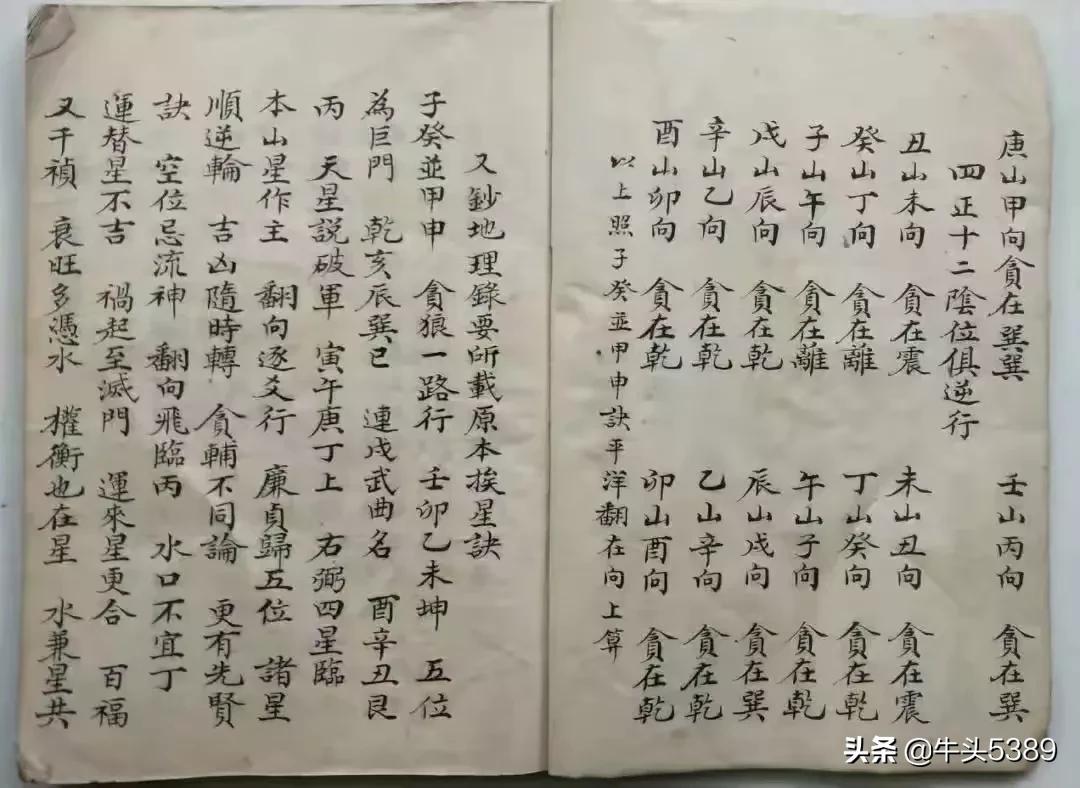 庚山甲向貪在巽巽 壬山丙向 貪在巽
四正十二陰位俱逆行
丑山未向 貪在震 未山丑向 貪在震
癸山丁向 貪在離 丁山癸向 貪在乾
子山午向 貪在離 午山子向 貪在乾
戌山辰向 貪在乾 辰山戌向 貪在巽
辛山乙向 貪在乾 乙山辛向 貪在乾
酉山卯向 貪在乾 卯山酉向 貪在乾
以上照子癸並甲申訣平洋翻在向上算
又鈔地理錄要所載原本挨星訣
子癸並甲申 貪狼一路行 壬卯乙未坤 五位
為巨門 乾亥辰巽巳 連戌武曲名 酉辛丑艮
丙 天星説破軍 寅午庚丁上 右弼四星臨
本山星作主 翻向逐爻行 廉貞歸五位 諸星
順逆輪 吉凶隨時轉 貪輔不同論 更有先賢
訣 空位忌流神 翻向飛臨丙 水口不宜丁
運替星不吉 禍起至滅門 運來星更合 百福
又千禎 衰旺多憑水 權衡也在星 水兼星共
头条 @牛头5389